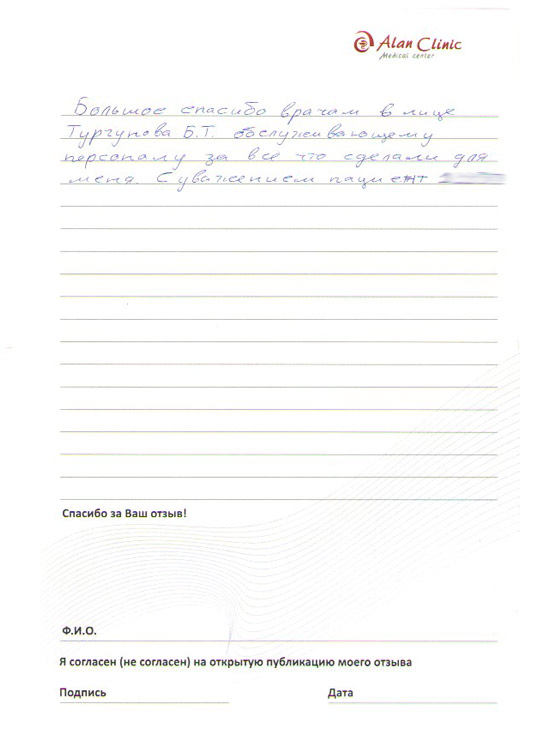 Alan Clinic
Medical center
Большое спасибо врачам в лице
Тургунова Б.Т. обслуживающему
персоналу за все что сделали для
меня. С уважением пациент
Спасибо за Ваш отзыв!
Ф.И.О.
Я согласен (не согласен) на открытую публикацию моего отзыва
Подпись Дата